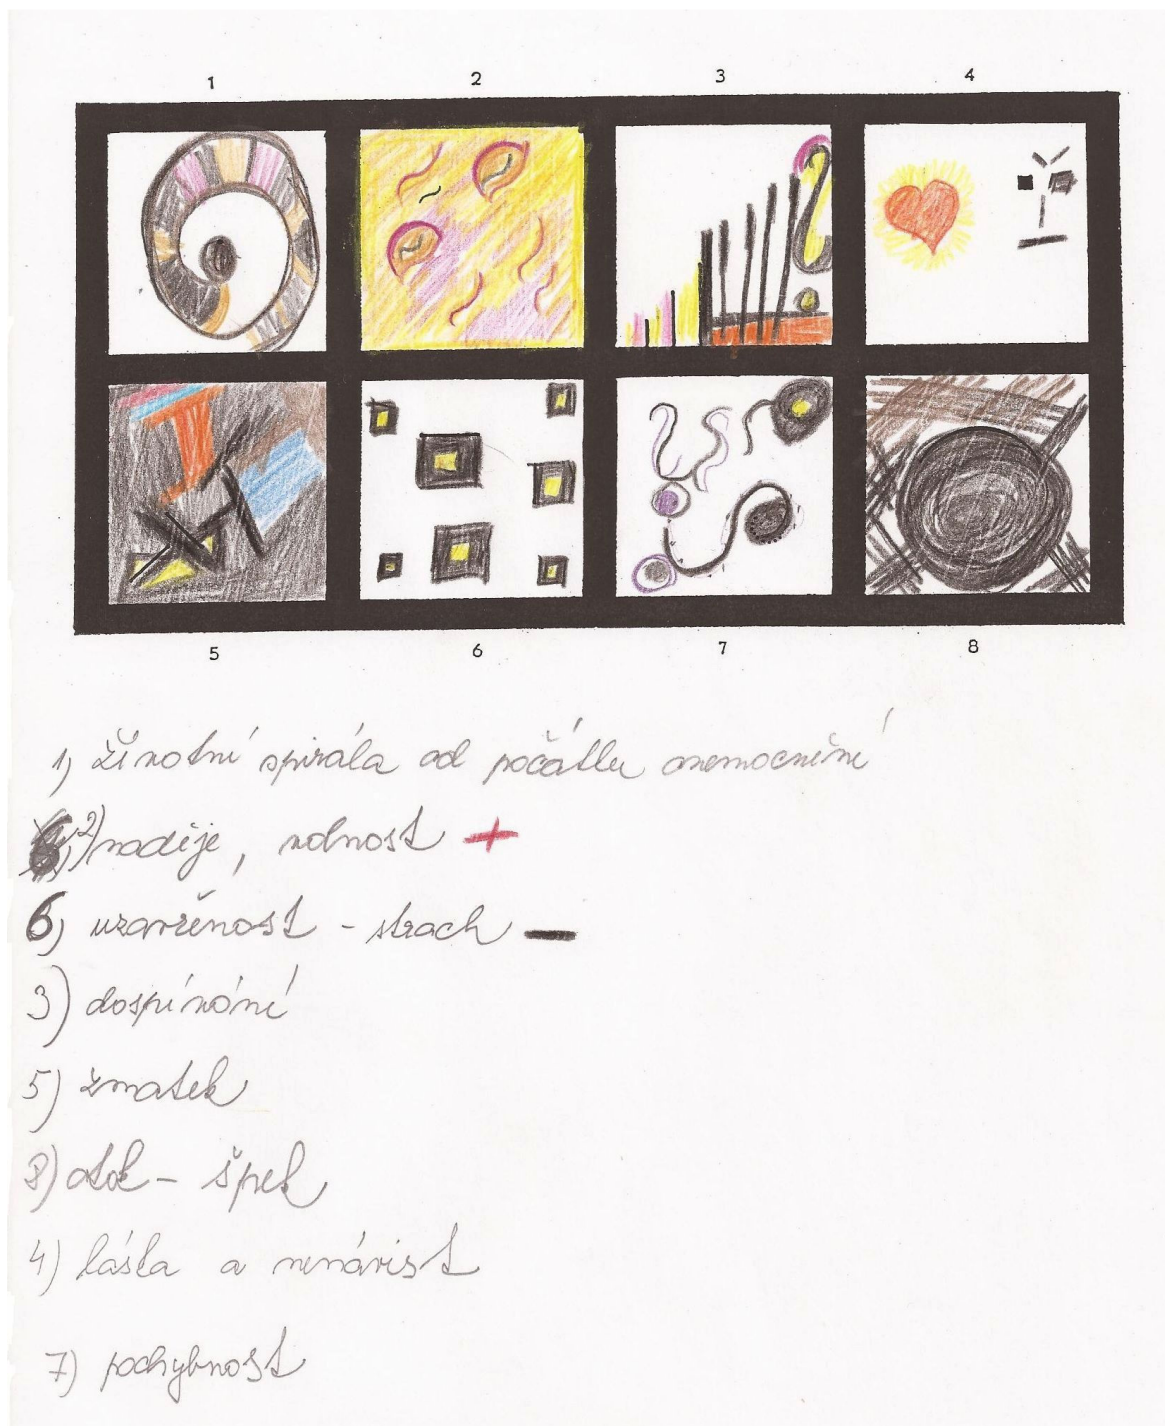 1 2 3 4
5 6 7 8
1) životní spirála od počátku onemocnění
2) naděje, volnost +
6) uzavřenost - strach -
3) dospívání
5) zmatek
8) otok - špek
4) láska a nenávist
7) pochybnost